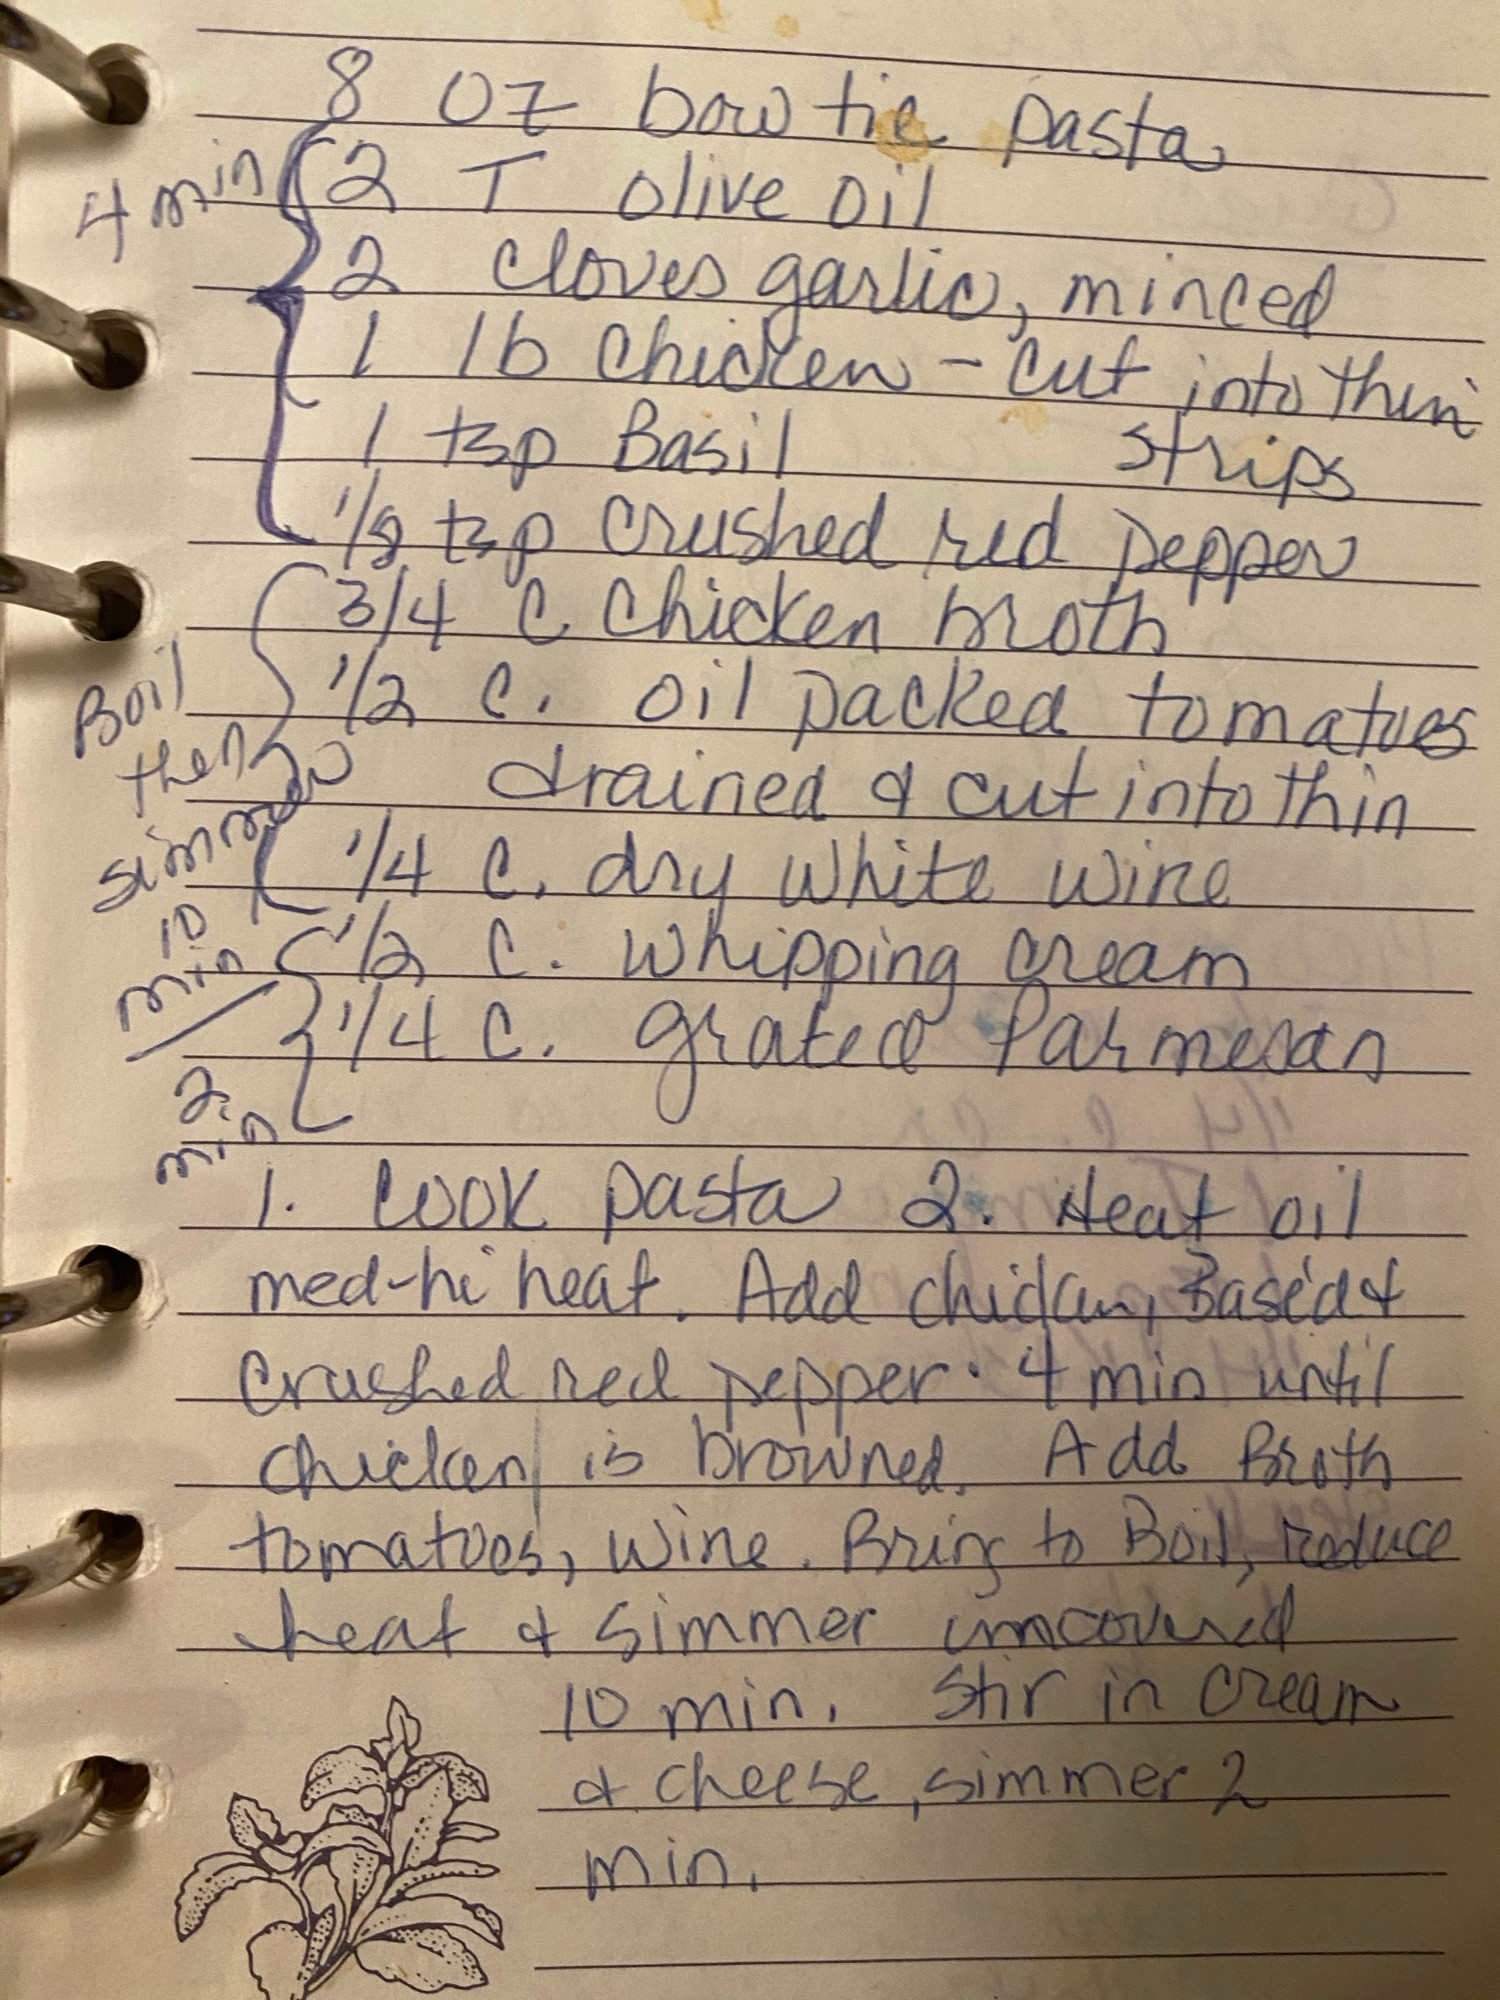 8 oz bow tie pasta
4 min
2 T olive oil
2 cloves garlic, minced
1 lb chicken - cut into thin
strips
1 tsp Basil
1/2 tsp crushed red pepper
Boil
then
simmer
10
min
3/4 c chicken broth
1/2 c. oil packed tomatoes
drained & cut into thin
1/4 c. dry white wine
2
min
1/2 c. whipping cream
1/4 c. grated Parmesan
1. Cook pasta 2. Heat oil
med-hi heat. Add chicken, &
crushed red pepper. 4 min until
chicken is browned. Add Broth
tomatoes, wine. Bring to Boil, reduce
heat & simmer uncovered
10 min. Stir in cream
& cheese, simmer 2
min.